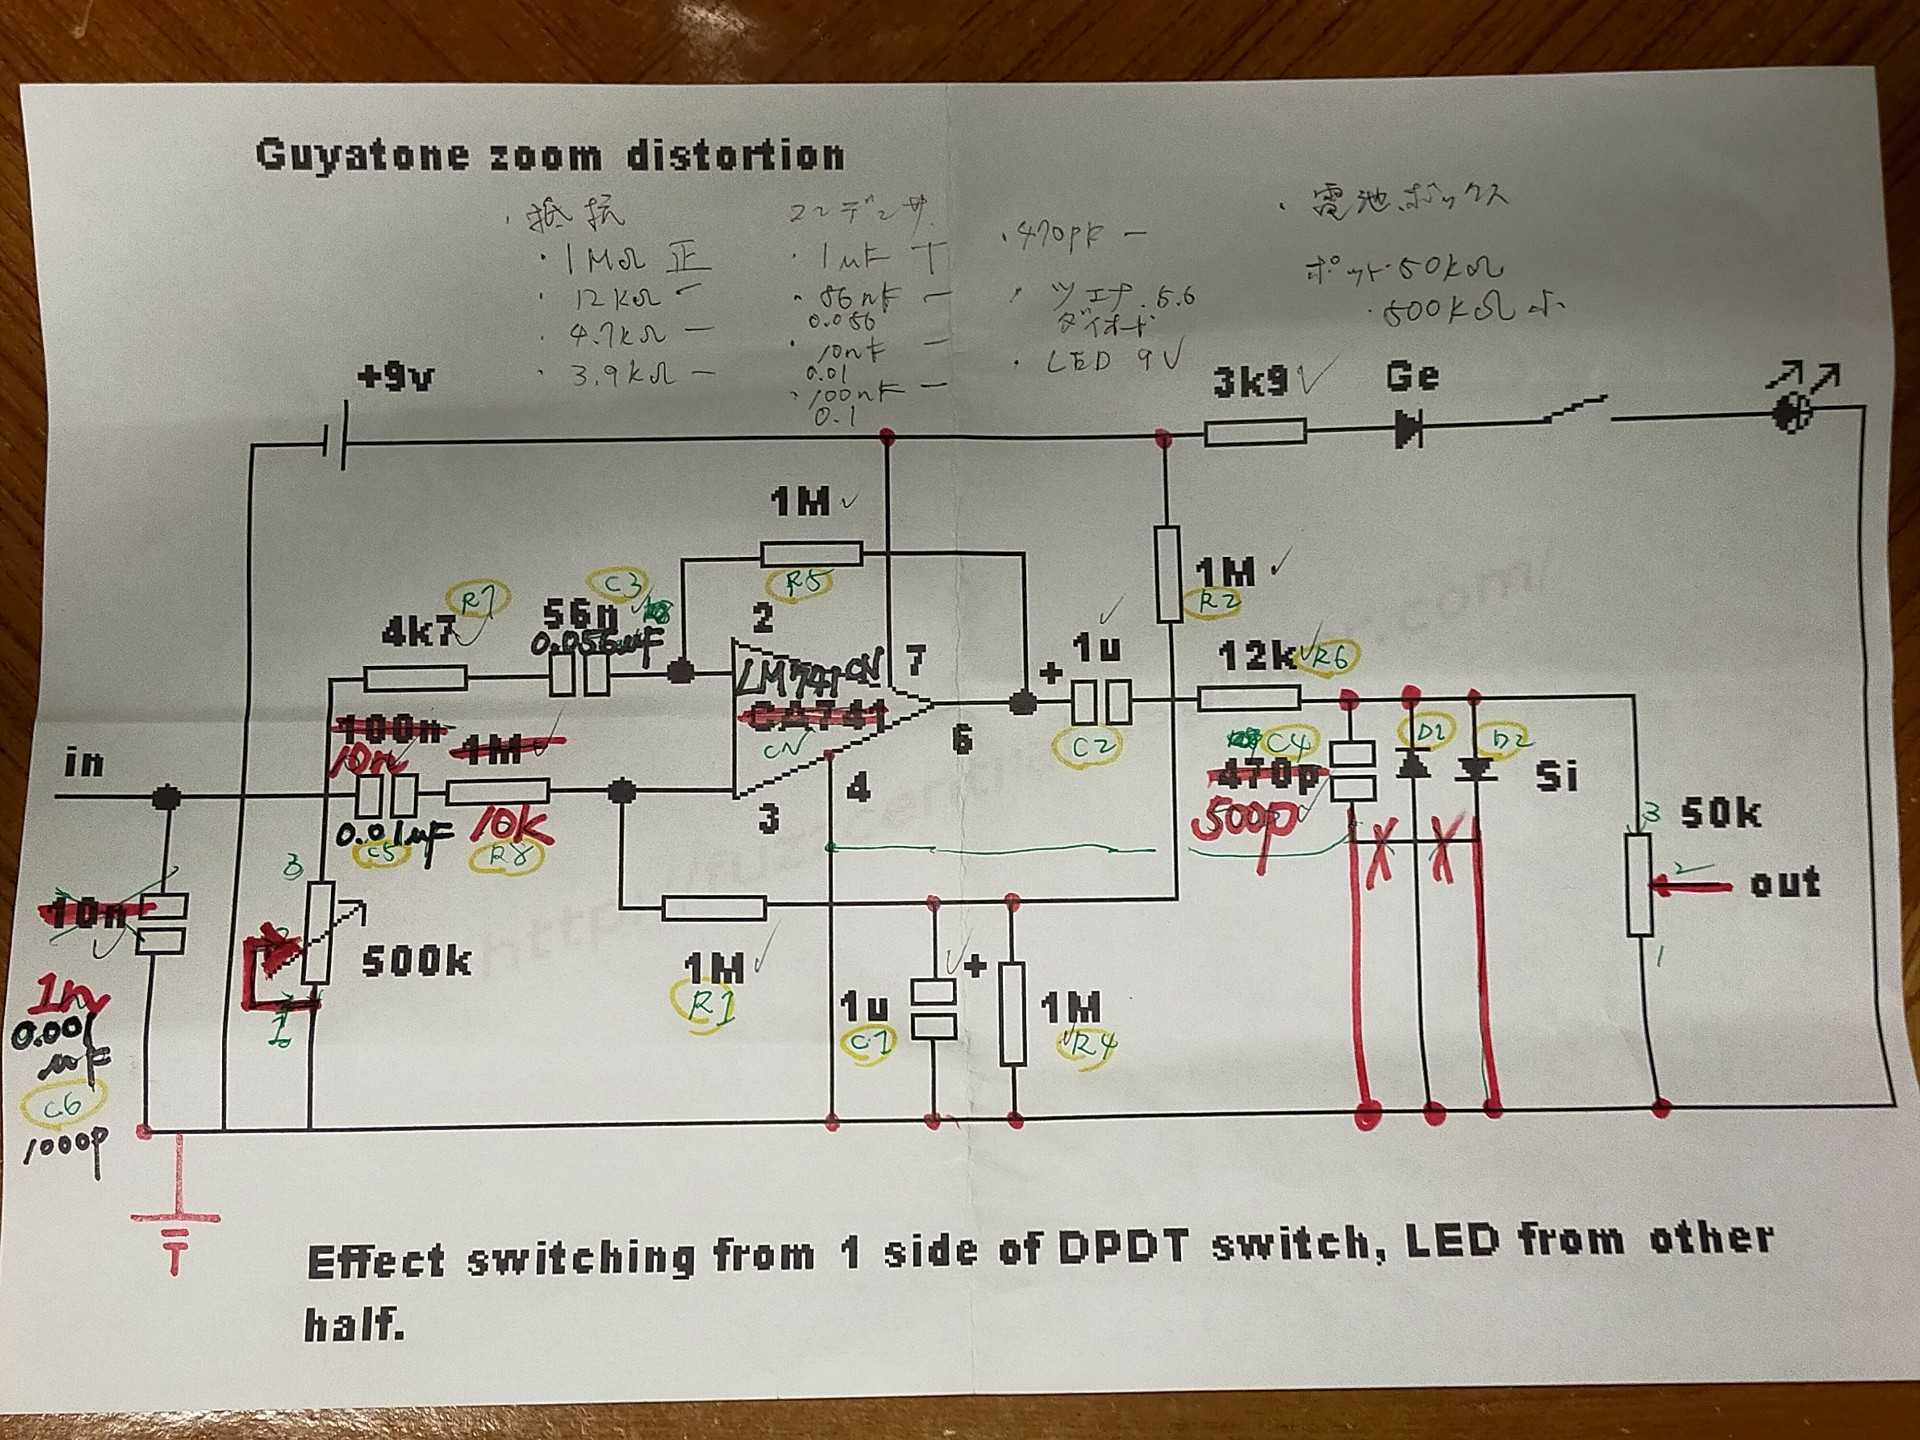 Guyatone zoom distortion
・抵抗
・1MΩ 正
・12kΩ
・4.7kΩ 一
・3.9kΩ 一
コンデンサ
・1μF
・56nF 一
0.056
・10nF 一
0.01
・100nF 一
0.1
・470pF 一
・ツェナ 5.6
ダイオード
・LED 9V
・電池ボックス
ポット 50kΩ
・500kΩ 小
+9v
3k9
Ge
1M
R5
1M
R2
R7
4k7
C3
56n
0.056μF
2
7
LM741CN
CA741
CN
6
3
4
+
1u
C2
12k
R6
C4
470p
500p
D1
D2
Si
3
50k
2
out
1
in
100n
10n
1M
0.01μF
C5
10k
R8
10n
1n
0.001
μF
C6
1000p
3
500k
1
1M
R1
1u
+
C1
1M
R4
Effect switching from 1 side of DPDT switch, LED from other
half.